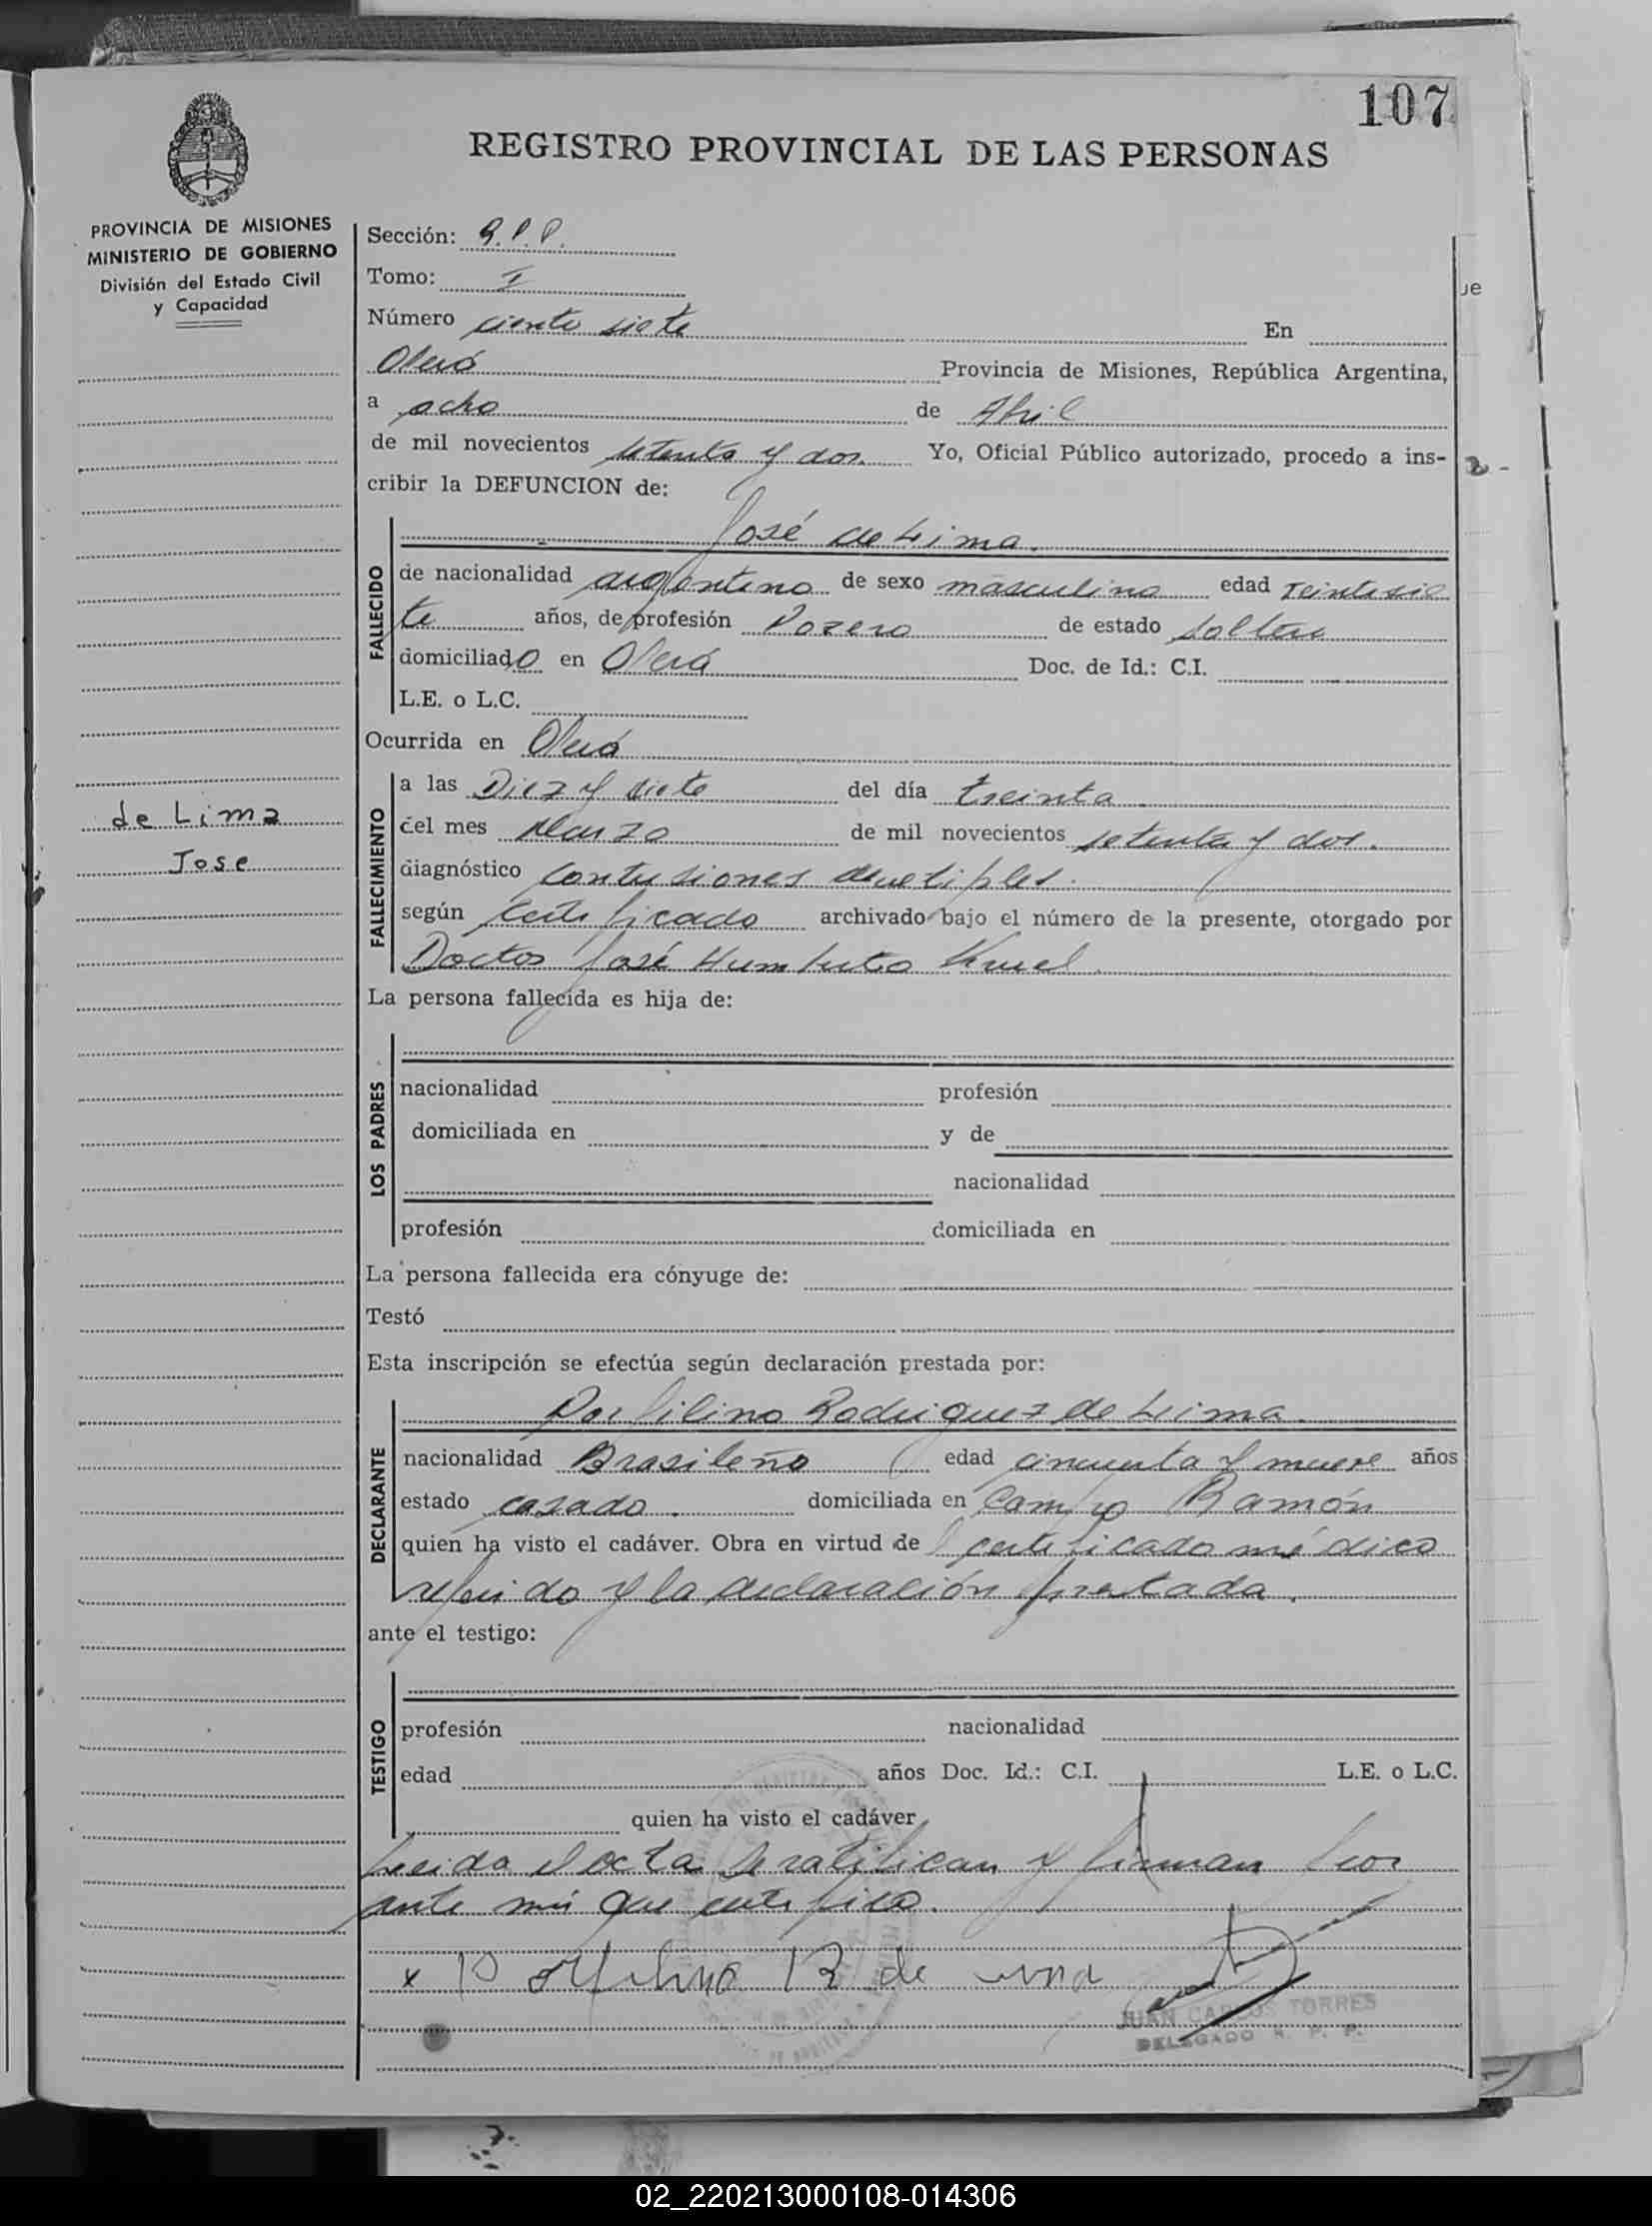 107
REGISTRO PROVINCIAL DE LAS PERSONAS
PROVINCIA DE MISIONES
MINISTERIO DE GOBIERNO
División del Estado Civil
y Capacidad
de Lima
Jose
Sección: G.P.P.
Tomo: I
Número ciento siete En
Oberá Provincia de Misiones, República Argentina,
a ocho de Abril
de mil novecientos setenta y dos. Yo, Oficial Público autorizado, procedo a ins-
cribir la DEFUNCION de:
José de Lima.
FALLECIDO
de nacionalidad argentino de sexo masculino edad
te años, de profesión Pozero de estado soltero
domiciliado en Oberá Doc. de Id.: C.I.
L.E. o L.C.
Ocurrida en Oberá
FALLECIMIENTO
a las Diez y siete del día treinta
del mes Marzo de mil novecientos setenta y dos.
diagnóstico contusiones multiples.
según certificado archivado bajo el número de la presente, otorgado por
Doctor José Humberto
La persona fallecida es hija de:
LOS PADRES
nacionalidad profesión
domiciliada en y de
nacionalidad
profesión domiciliada en
La persona fallecida era cónyuge de:
Testó
Esta inscripción se efectúa según declaración prestada por:
DECLARANTE
Porfilino Rodriguez de Lima.
nacionalidad Brasileño edad cincuenta y nueve años
estado casado. domiciliada en Campo Ramón
quien ha visto el cadáver. Obra en virtud de l certificado médico
referido y la declaración prestada.
ante el testigo:
TESTIGO
profesión nacionalidad
edad años Doc. Id.: C.I. L.E. o L.C.
quien ha visto el cadáver
Leida el acta se ratifican y firman por
ante mi que certifico.
x R de
JUAN CARLOS TORRES
DELEGADO R. P. P.
02_220213000108-014306